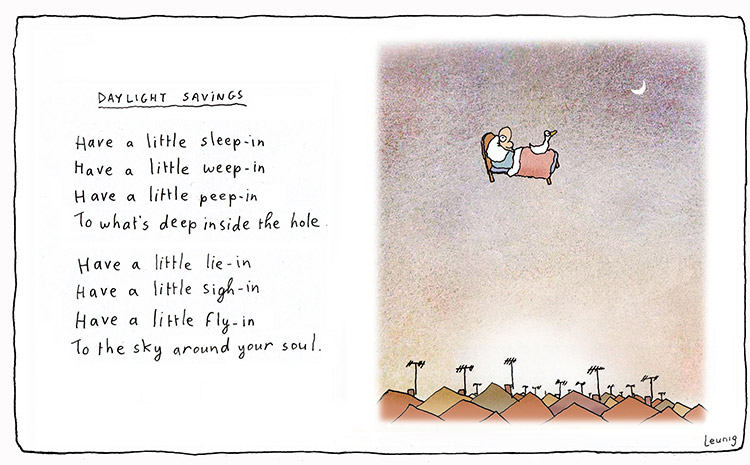 DAYLIGHT SAVINGS
Have a little sleep-in
Have a little weep-in
Have a little peep-in
To what's deep inside the hole.
Have a little lie-in
Have a little sigh-in
Have a little fly-in
To the sky around your soul.
Leunig